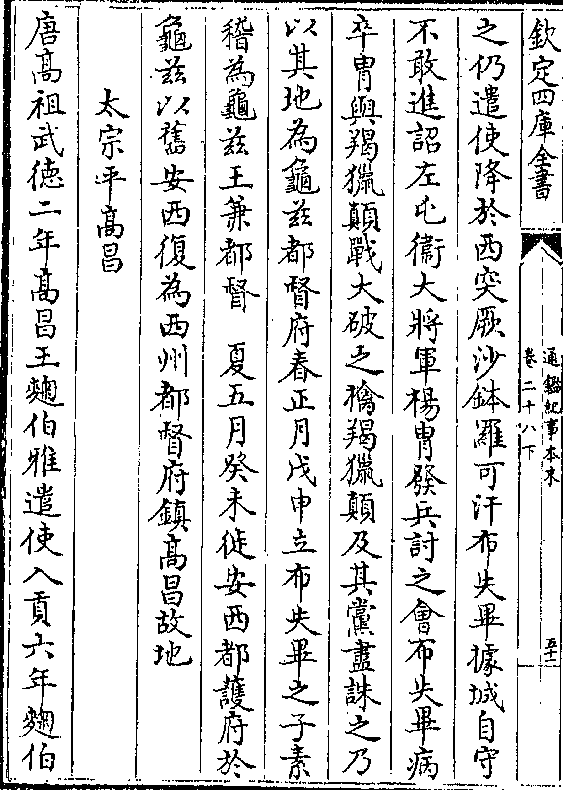 欽定四庫全書
通鑑紀事本末
卷二十八下
之仍遣使降於西突厥沙鉢羅可汗布失畢據城自守
不敢進詔左屯衞大將軍楊胄發兵討之會布失畢病
卒胄與羯獵顛戰大破之擒羯獵顛及其黨盡誅之乃
以其地為龜兹都督府春正月戊申立布失畢之子素
稽為龜兹王兼都督　夏五月癸未徙安西都護府於
龜兹以舊安西復為西州都督府鎮高昌故地
太宗平高昌
唐高祖武德二年高昌王麴伯雅遣使入貢六年麴伯